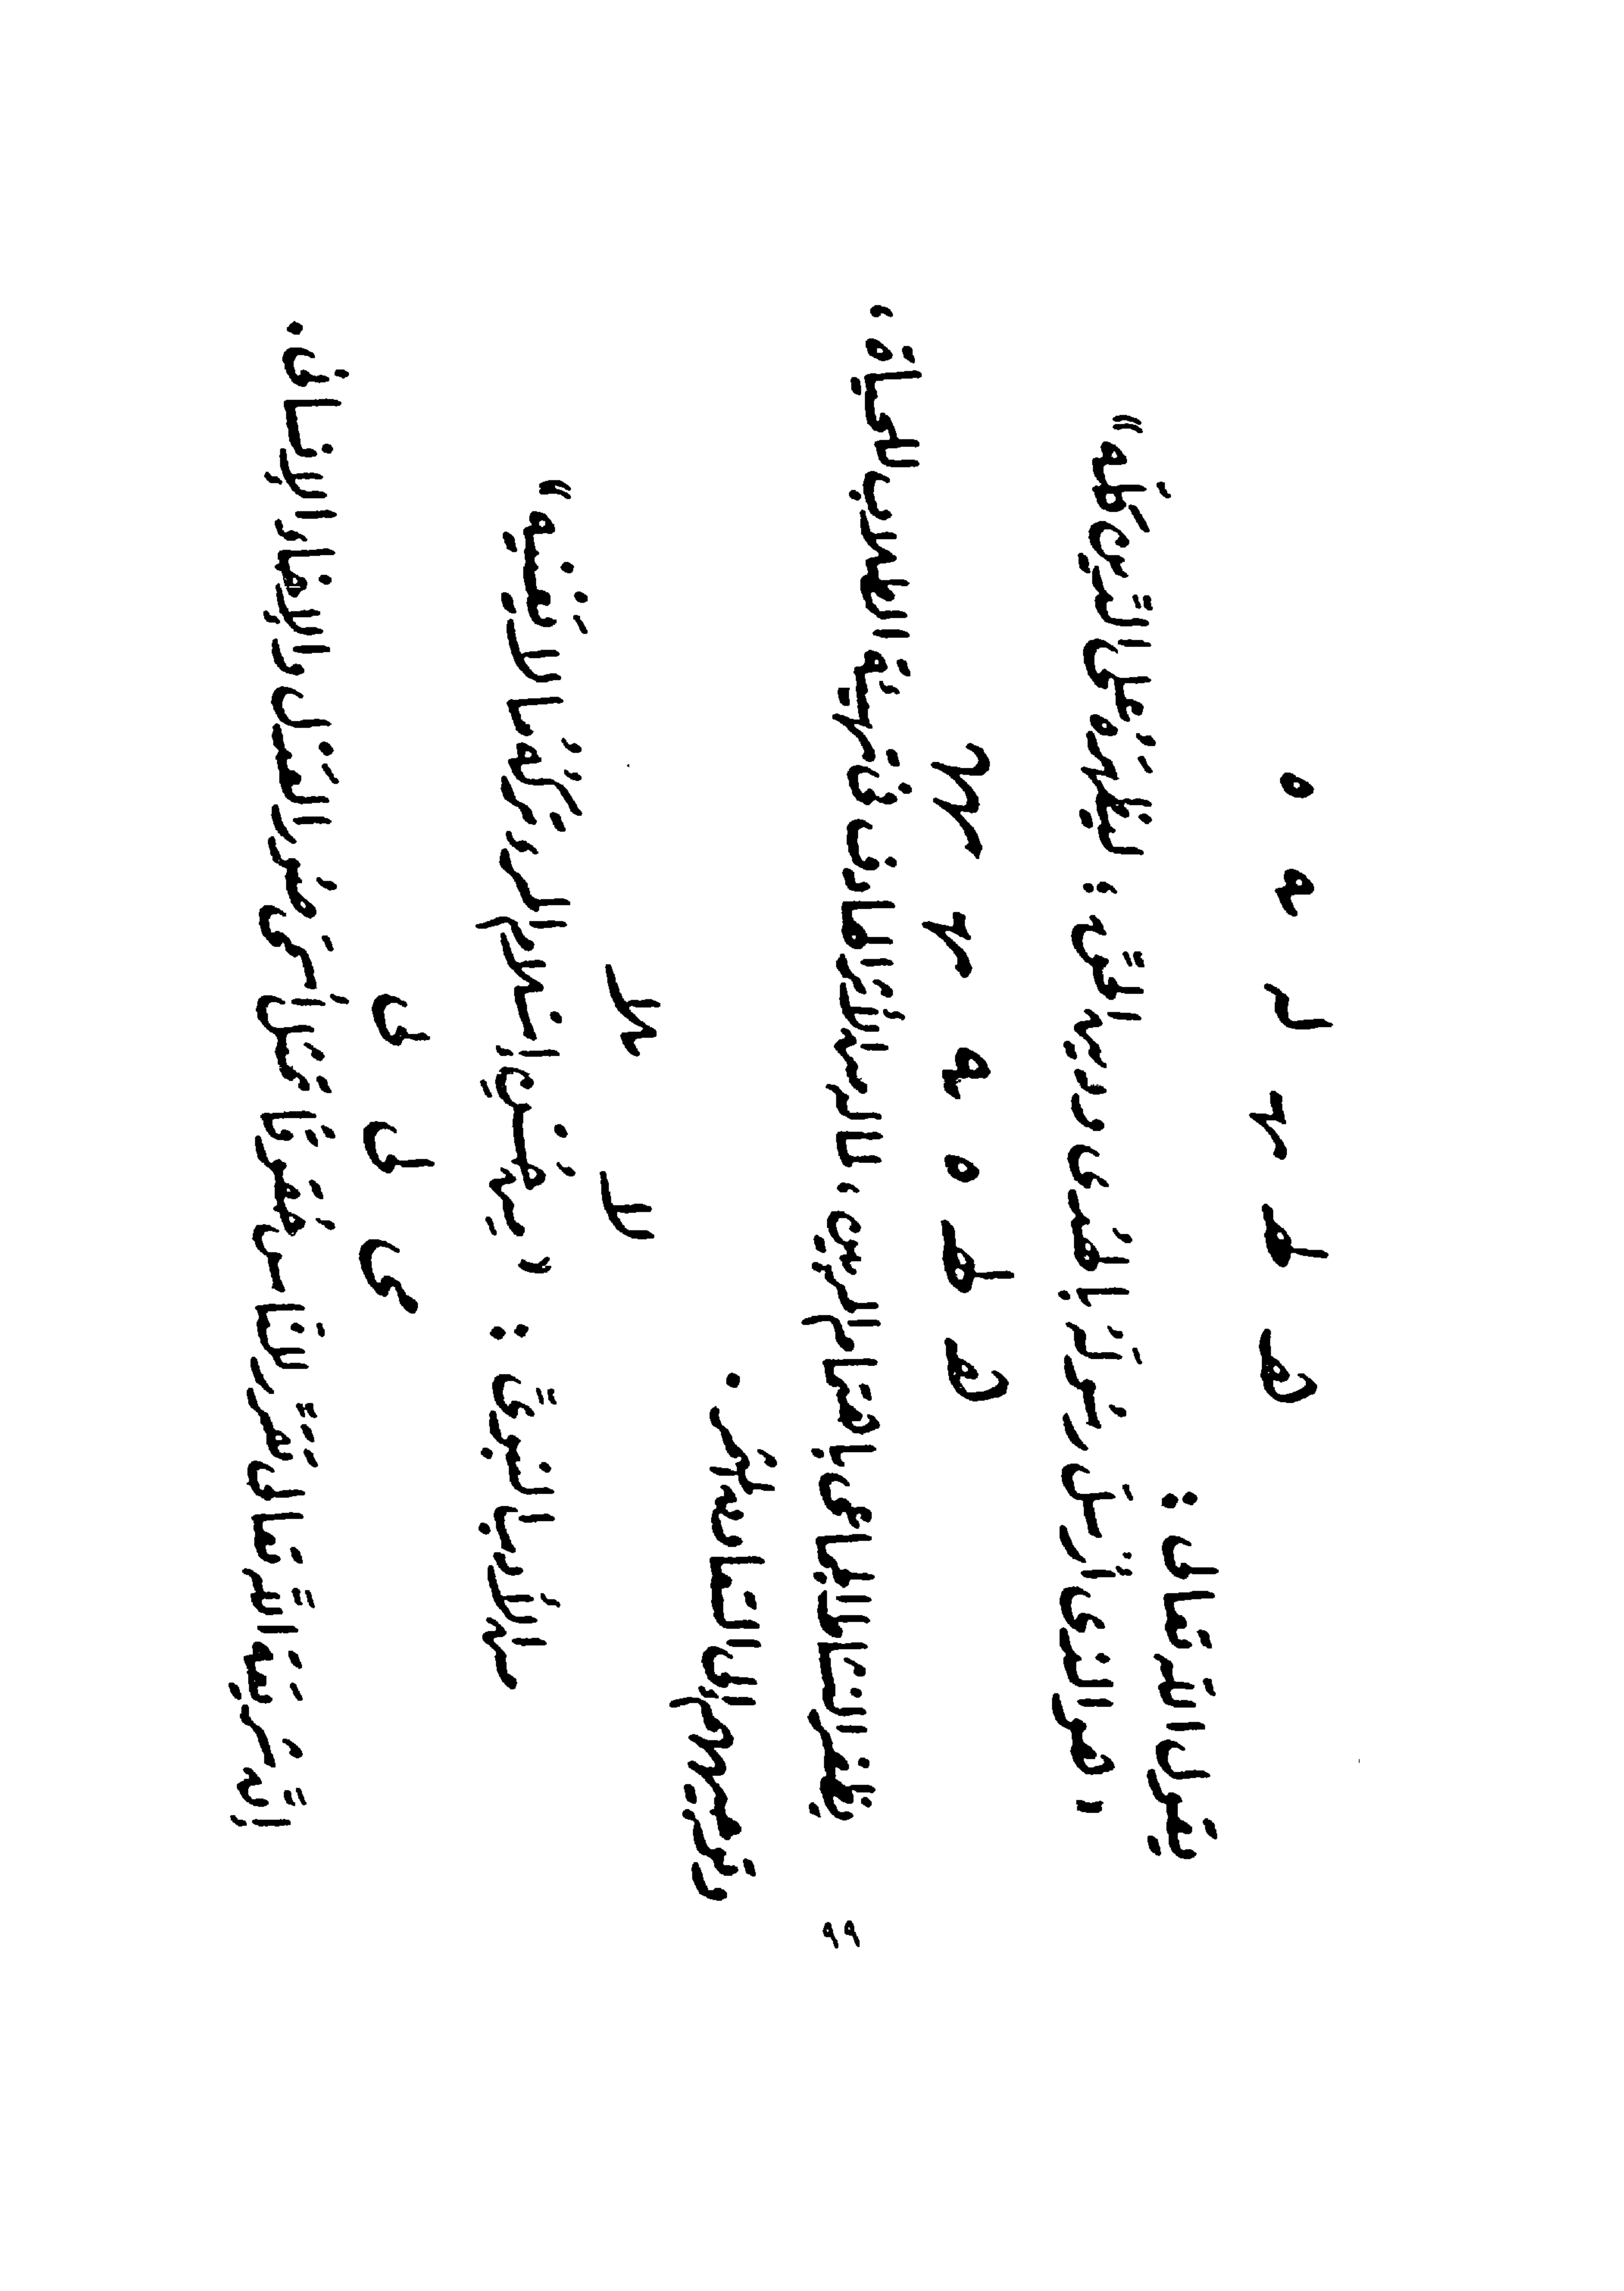 هـ ط مـ لـ ـه ه
يقول الله تعالى :
« هو الذى أرسل رسوله بالهدى ودين الحق : ليظهره على الدين كله »
هـ ط ه ـه مـ
يظفر النشاط الاجتماعى باهتمام المربين ، الهادف فى الطلاب للحياة ،
وتوجيههم إلى التعاون
لا ـلا
من الأدب النبوى : « من حسن إسلام المرء تركه ما لا يعنيه »
ى ل ف
إن شريعة الله تعالى تقرر للناس حقوقا تمثل أسمى صور العدل والإخاء الإنسانى .